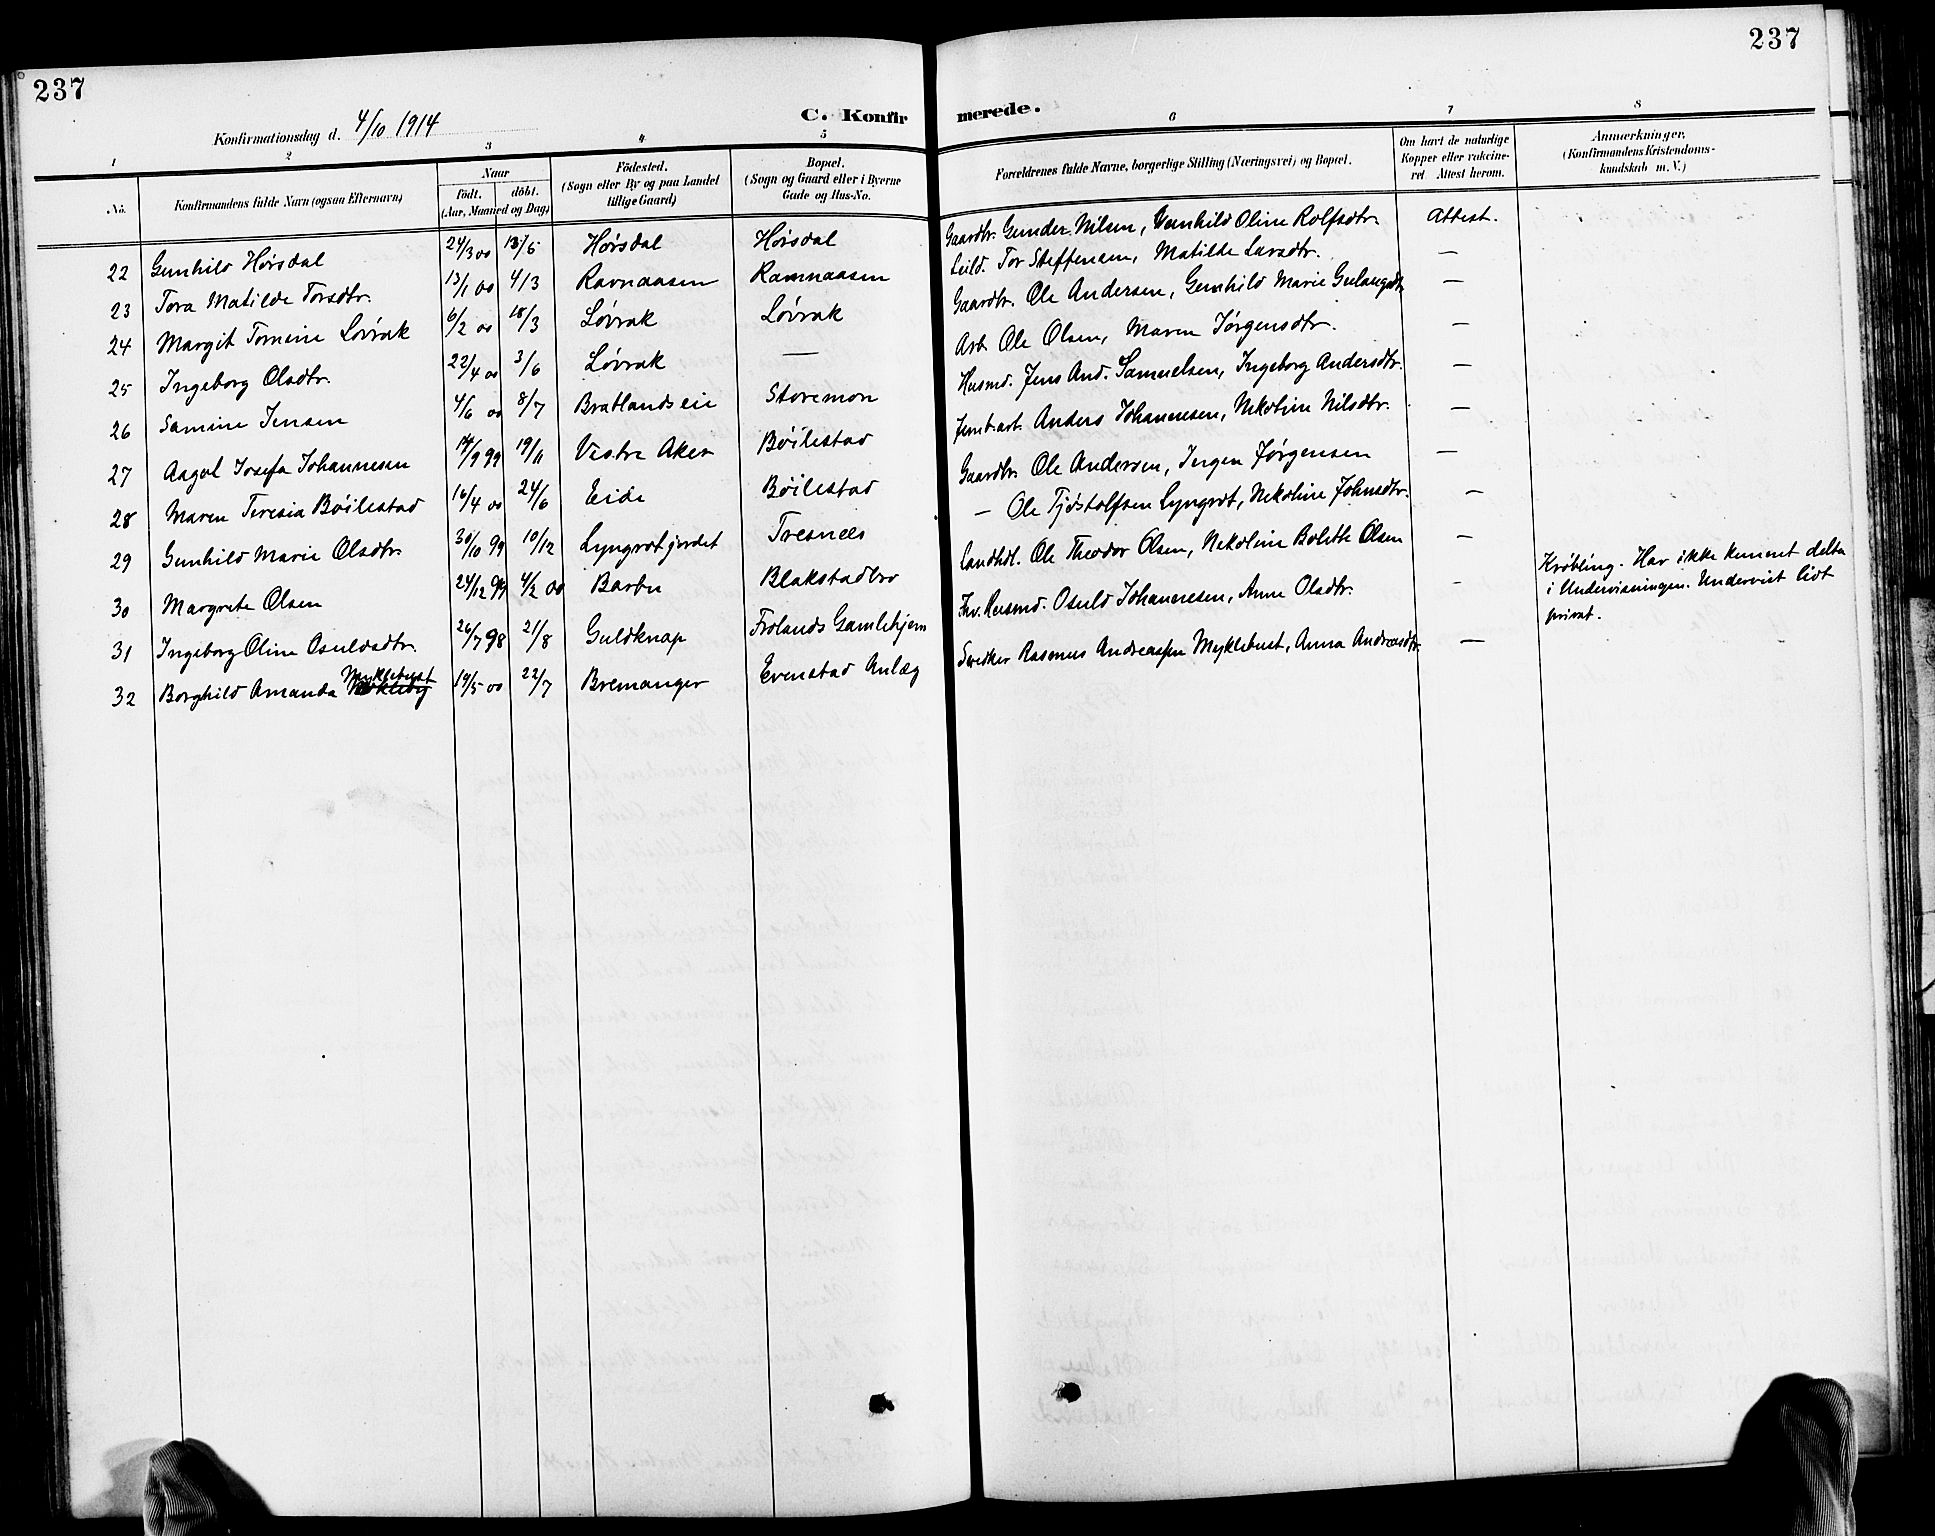 237
237
Konfirmationsdag d. 4/10 1914
C. Konfirmerede.
1 2 3 4 5 6 7 8
No.
Konfirmandens fulde Navn (ogsaa Efternavn)
Naar
födt. döbt.
(Aar, Maaned og Dag)
Födested.
(Sogn eller By og paa Landet
tillige Gaard)
Bopæl.
(Sogn og Gaard eller i Byerne
Gade og Hus-No.
Forældrenes fulde Navne, borgerlige Stilling (Næringsvei) og Bopæl.
Om havt de naturlige
Kopper eller vakcine-
ret Attest herom.
Anmærkninger,
(Konfirmandens Kristendoms-
kundskab m. V.)
22 Gunhild Høisdal 24/3 00 /5 Høisdal Høisdal Gaardbr. Gunder Nilsen, Gunhild Oline Rolfsdtr. Attest.
23 Tora Matilde Torsdtr. 13/1 00 4/3 Ravnaasen Ramnaasen Leild. Tor Steffensen, Matilde Larsdtr. —
24 Margit Tomine Løvrak 6/2 00 18/3 Løvrak Løvrak Gaardbr. Ole Andersen, Gunhild Marie —
25 Ingeborg Olsdtr. 22/4 00 3/6 Løvrak — Arb. Ole Olsen, Maren Jørgensdtr. —
26 Samine Jensen 4/6 00 8/7 Bratlandseie Storemon Husmd. Jens And. Samuelsen, Ingeborg Andersdtr. —
27 Aagot Josefa Johannesen /9 99 19/11 Vestre Aker Bøilestad Jernb.arb. Anders Johannesen, Nikoline Nilsdtr. —
28 Maren Teresia Bøilestad 16/4 00 24/6 Eide Bøilestad Gaardbr. Ole Andersen, Ingen Jørgensen —
29 Gunhild Marie Olsdtr. 30/10 99 10/12 Lyngrotjordet Tresnes — Ole Tjøstolfsen Lyngrot, Nikoline Johnsdtr. —
30 Margrete Olsen 24/12 99 4/2 00 Barbu Blakstadbro Landhdl. Ole Theodor Olsen, Nikoline Bolette Olsen —
31 Ingeborg Oline Osuldsdtr. 26/7 98 21/8 Guldknap Frolands Gamlehjem Inv. Husmd. Osuld Johannesen, Anne Olsdtr. - Krøbling. Har ikke kunnet delta
i Undervisningen. Undervist lidt
privat.
32 Borghild Amanda Myklebust 19/5 00 22/7 Bremanger Evenstad Anlæg Snedker Rasmus Andreassen Myklebust, Anna Andreasdtr. —